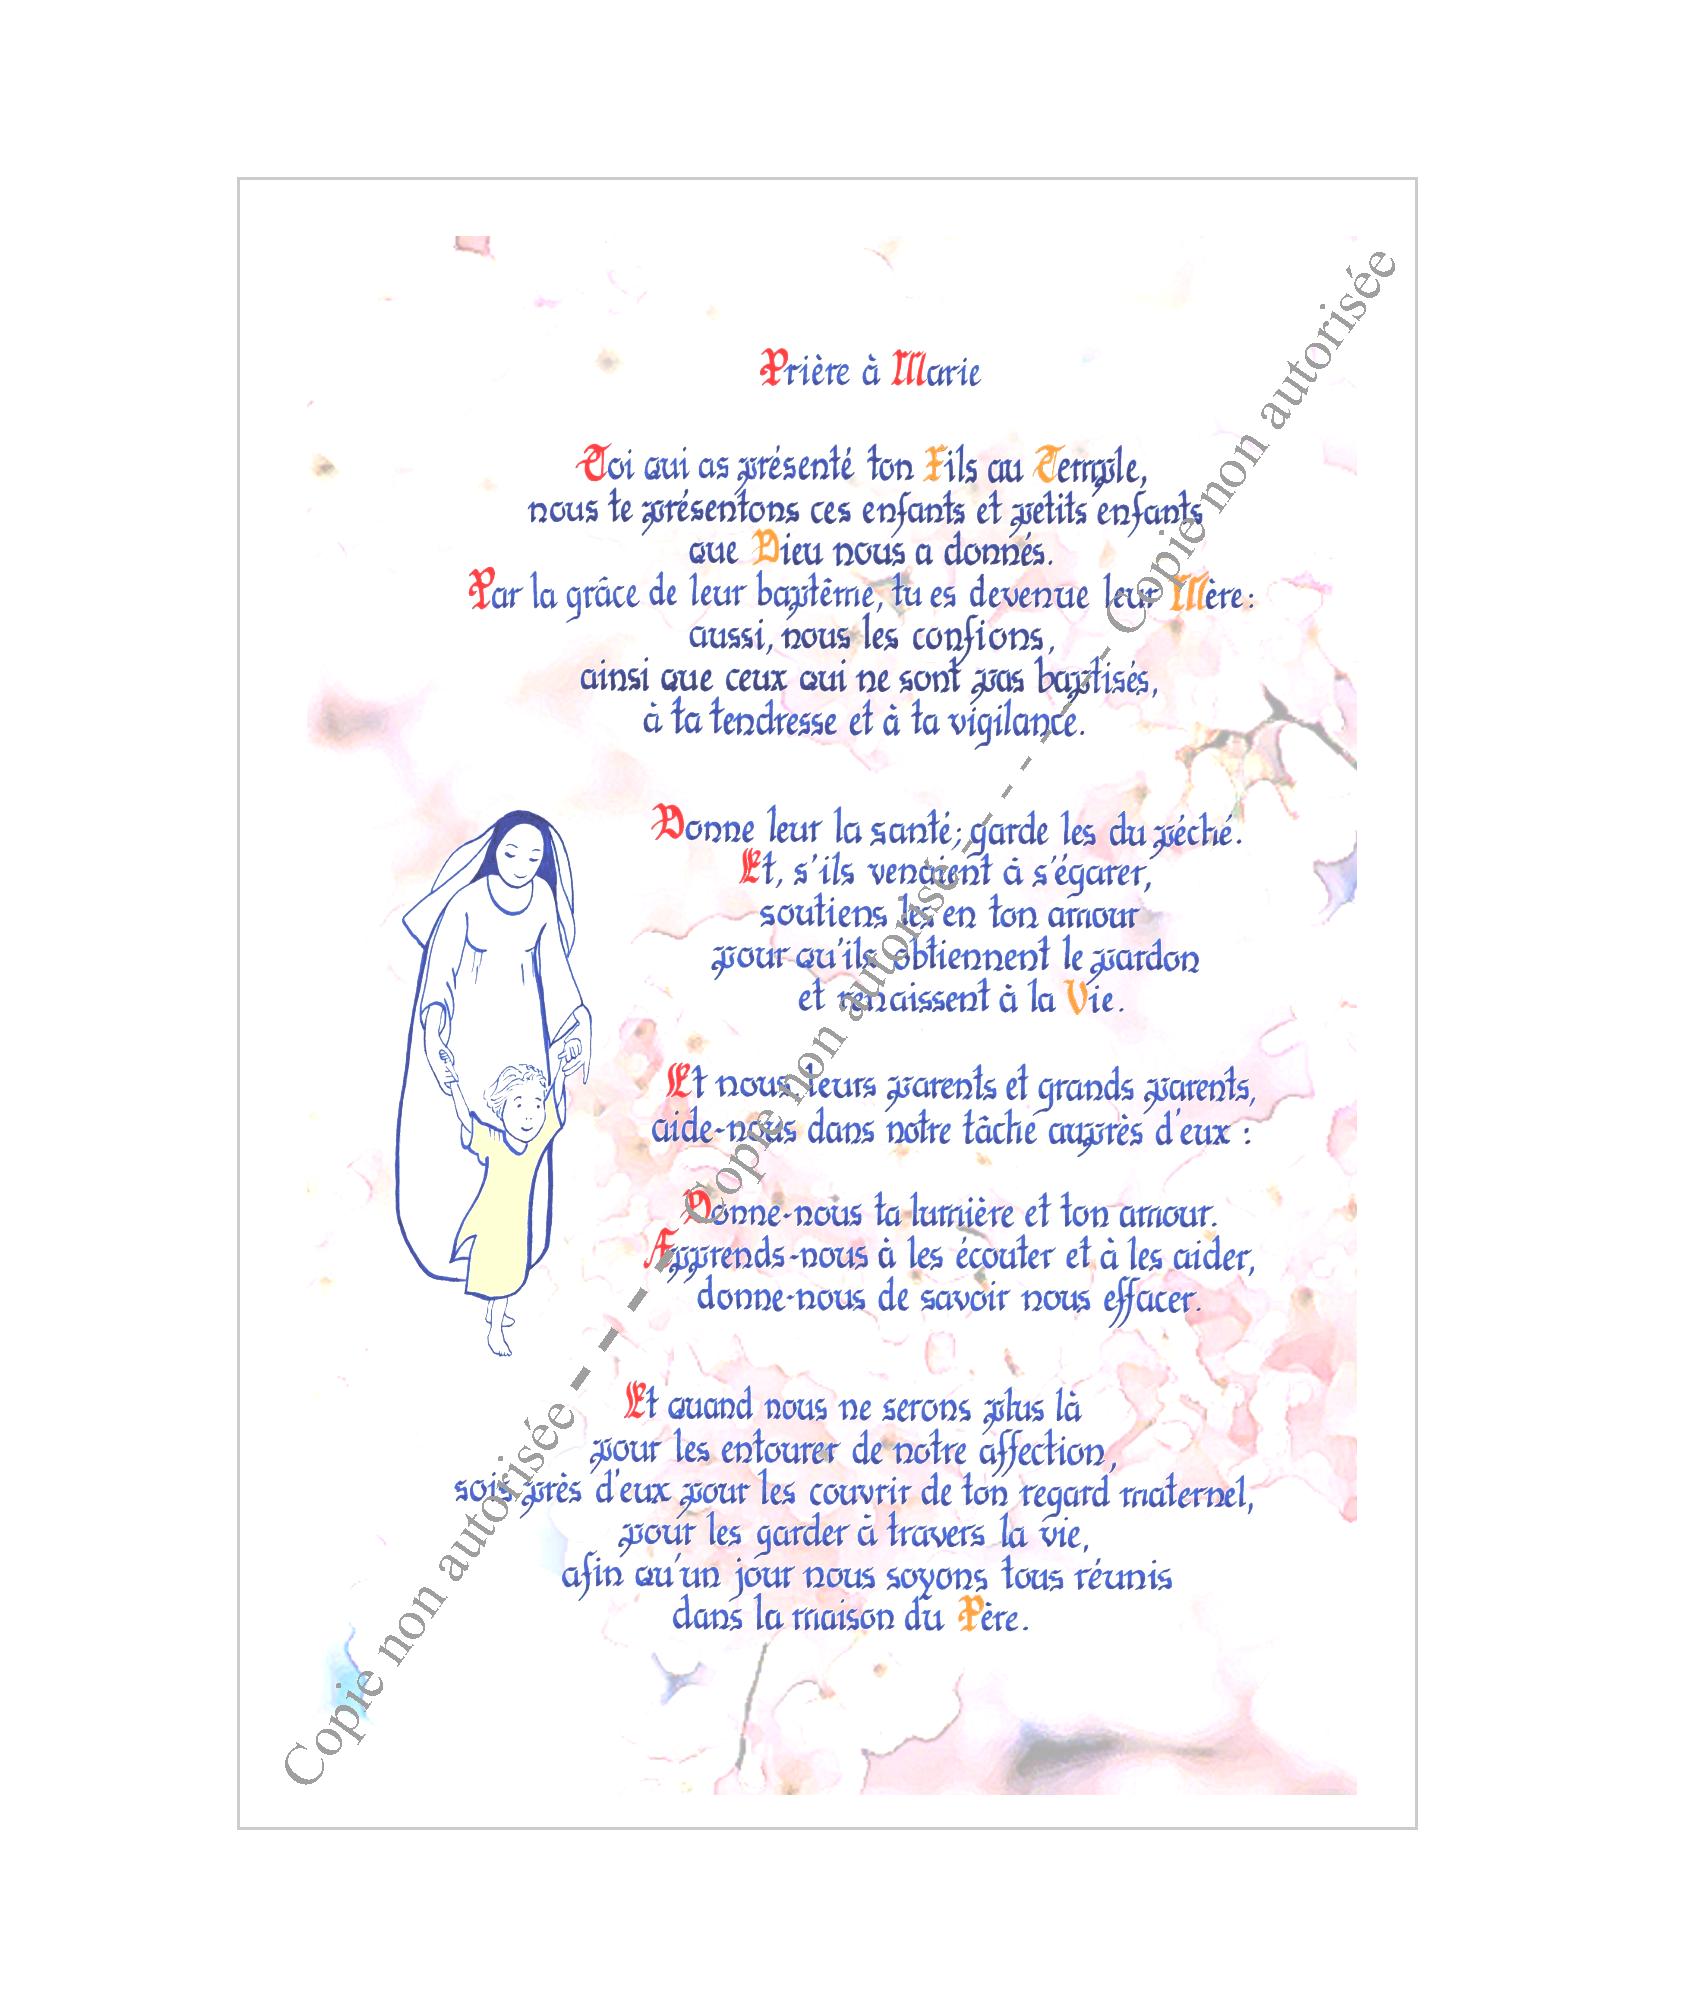 Prière à Marie
Toi qui as présenté ton Fils au Temple,
nous te présentons ces enfants et petits enfants
que Dieu nous a donnés.
Par la grâce de leur baptême, tu es devenue leur Mère :
aussi, nous les confions,
ainsi que ceux qui ne sont pas baptisés,
à ta tendresse et à ta vigilance.
Donne leur la santé; garde les du péché.
Et, s'ils venaient à s'égarer,
soutiens les en ton amour
pour qu'ils obtiennent le pardon
et renaissent à la Vie.
Et nous leurs parents et grands parents,
aide-nous dans notre tâche auprès d'eux :
Donne-nous ta lumière et ton amour.
Apprends-nous à les écouter et à les aider,
donne-nous de savoir nous effacer.
Et quand nous ne serons plus là
pour les entourer de notre affection,
sois près d'eux pour les couvrir de ton regard maternel,
pour les garder à travers la vie,
afin qu'un jour nous soyons tous réunis
dans la maison du Père.
Copie non autorisée - - - Copie non autorisée - - - Copie non autorisée